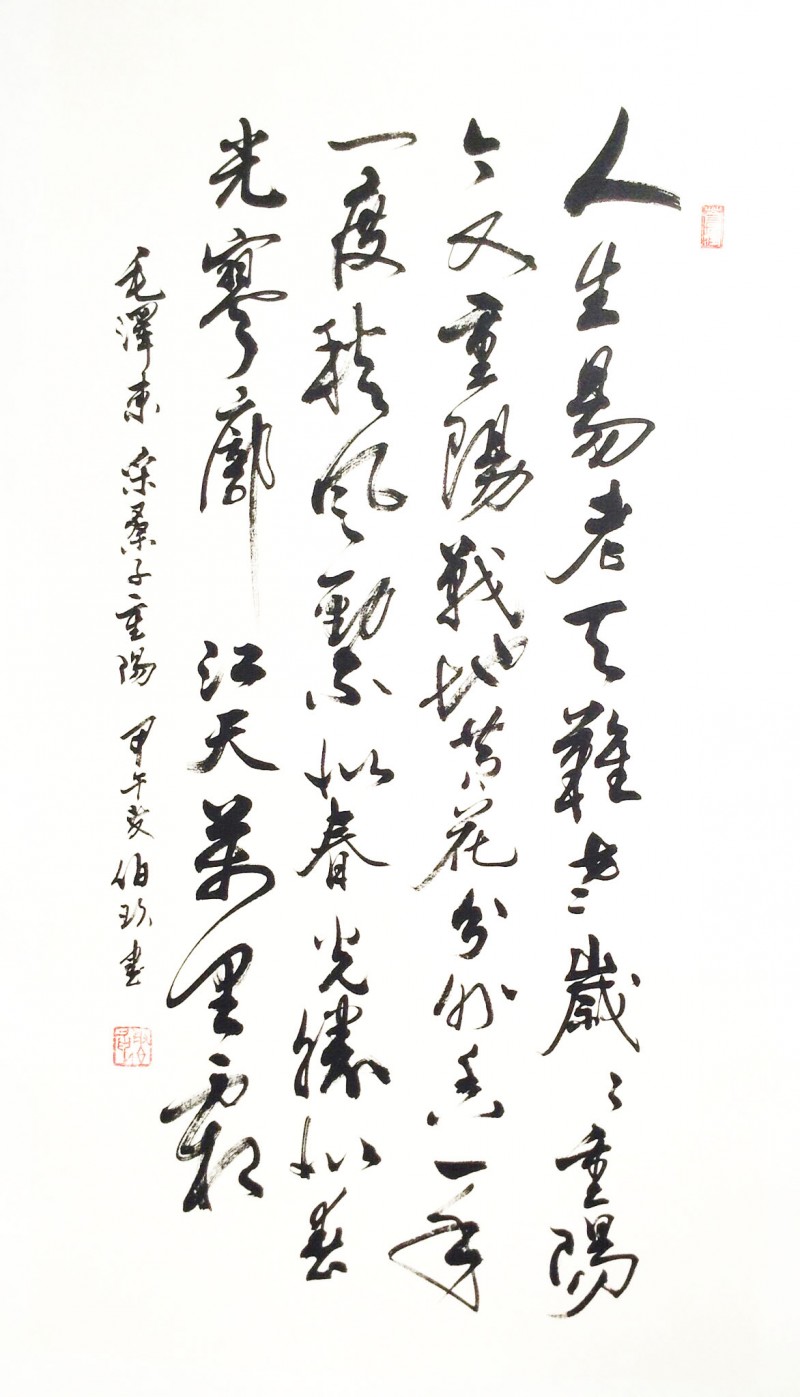 人生易老天難老歲〻重陽
今又重陽戰地黄花分外香一年
一度秋風勁不似春光勝似春
光寥廓江天萬里霜
毛澤東采桑子重陽 甲午夏伯玖書